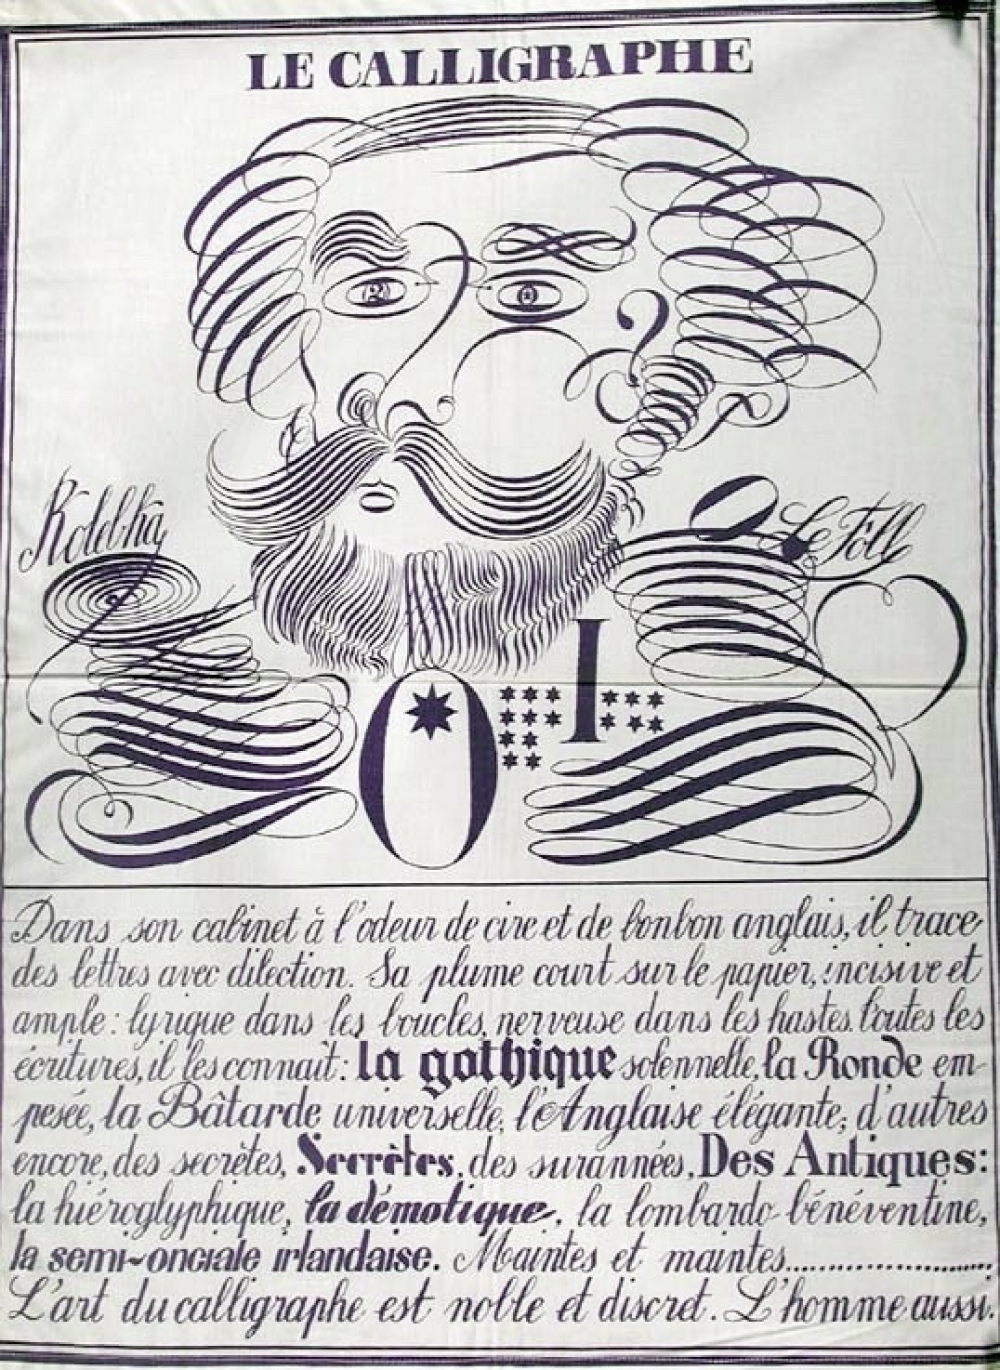 LE CALLIGRAPHE
Kolebka
Le Foll
O I
Dans son cabinet à l'odeur de cire et de bonbon anglais, il trace
des lettres avec dilection. Sa plume court sur le papier, incisive et
ample : lyrique dans les boucles, nerveuse dans les hastes. Toutes les
écritures, il les connaît : la gothique solennelle, la Ronde em-
pesée, la Bâtarde universelle, l'Anglaise élégante; d'autres
encore, des secrètes, Secrètes, des surannées, Des Antiques:
la hiéroglyphique, la démotique, la lombardo-bénéventine,
la semi-onciale irlandaise. Maintes et maintes......................
L'art du calligraphe est noble et discret. L'homme aussi.